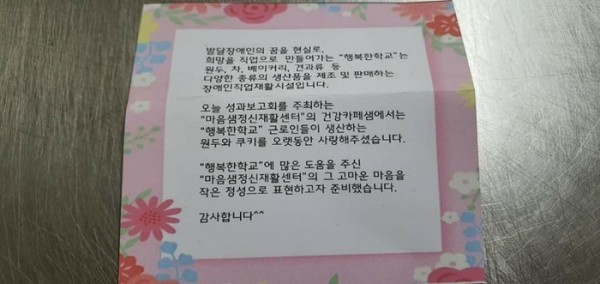 발달장애인의 꿈을 현실로,
희망을 직업으로 만들어가는 "행복한학교"는
원두, 차, 베이커리, 견과류 등
다양한 종류의 생산품을 제조 및 판매하는
장애인직업재활시설입니다.
오늘 성과보고회를 주최하는
"마음샘정신재활센터"의 건강카페샘에서는
"행복한학교" 근로인들이 생산하는
원두와 쿠키를 오랫동안 사랑해주셨습니다.
"행복한학교"에 많은 도움을 주신
"마음샘정신재활센터"의 그 고마운 마음을
작은 정성으로 표현하고자 준비했습니다.
감사합니다^^